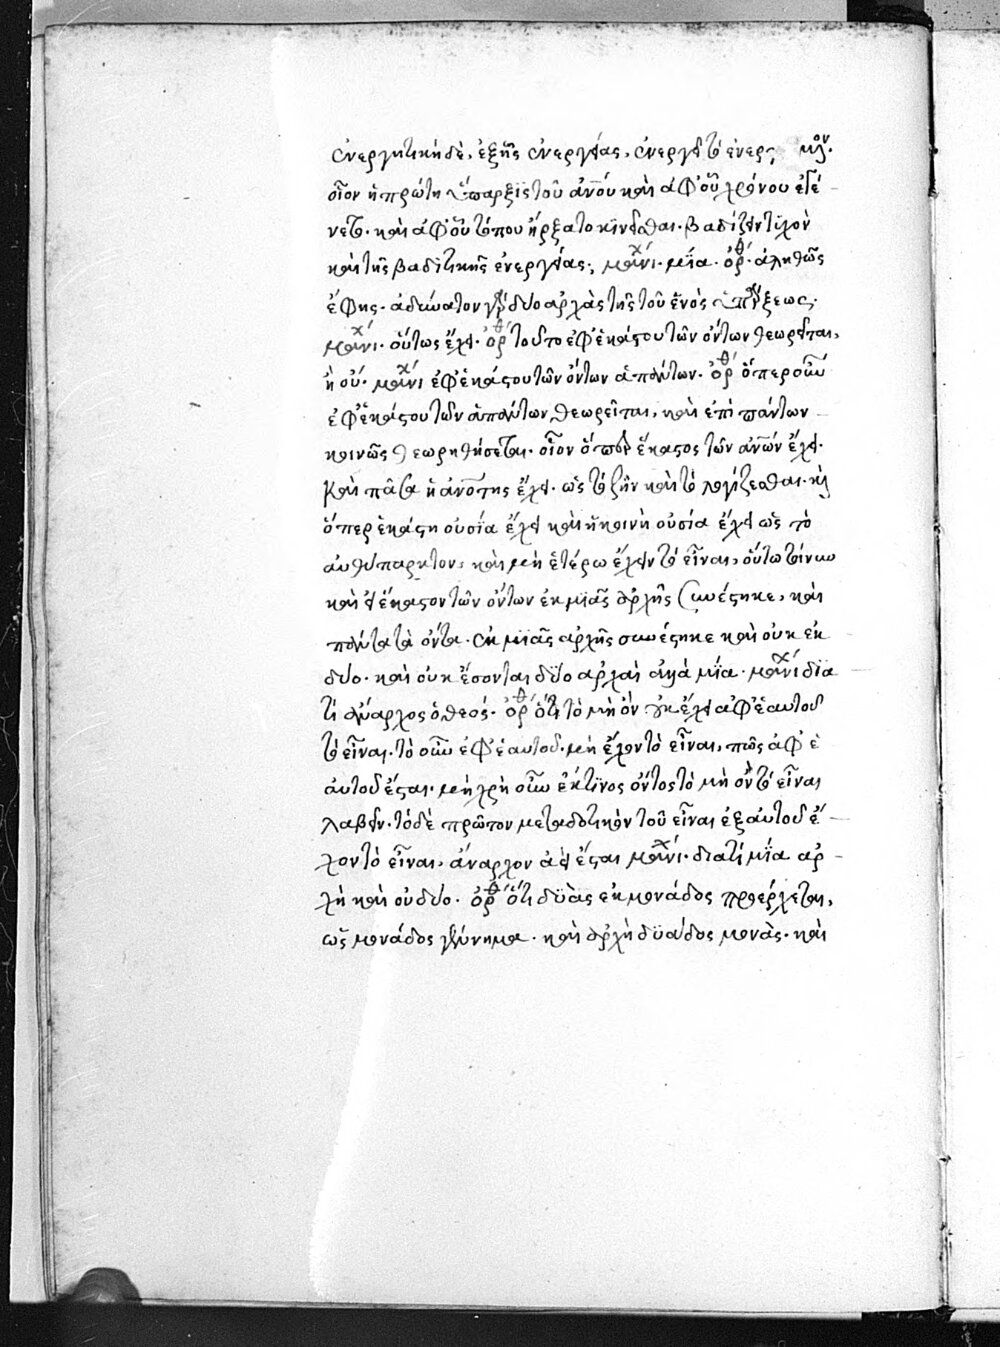 ἐνεργητικὴ δὲ, ἐξ ἧς ἐνεργείας, ἐνεργεῖ τὸ ἐνερ
οἷον ἡ πρώτη ὕπαρξις τοῦ ἀνου καὶ ἀφ' οὗ χρόνου ἐγέ
νετο. καὶ ἀφ' οὗ τόπου ἤρξατο κινεῖσθαι. βαδίζειν
καὶ τῆς βαδιστικῆς ἐνεργείας. μανι. μία. ὀρθ. ἀληθῶς
ἔφης. ἀδύνατον γὰρ δύο ἀρχὰς τῆς τοῦ ἑνὸς ὑπάρξεως.
μανιχ. οὕτως ἔχει. ὀρθ τοῦτο ἐφ' ἑκάστου τῶν ὄντων θεωρεῖται,
ἢ οὔ. μανιχ ἐφ' ἑκάστου τῶν ὄντων ἁπάντων. ὀρθ ὅπερ οὖν
ἐφ' ἑκάστου τῶν ἁπάντων θεωρεῖται, καὶ ἐπὶ πάντων
κοινῶς θεωρηθήσεται. οἷον ὅπερ ἕκαστος τῶν ἀνων ἔχει.
καὶ πᾶσα ἡ ἀνοτης ἔχει. ὡς τὸ ζῆν καὶ τὸ λογίζεσθαι. καὶ
ὅπερ ἑκάστη οὐσία ἔχει καὶ ἡ κοινὴ οὐσία ἔχει ὡς τὸ
αὐθύπαρκτον, καὶ μὴ ἑτέρω ἔχειν τὸ εἶναι, οὕτω τοίνυν
καὶ εἰ ἕκαστον τῶν ὄντων ἐκ μιᾶς ἀρχῆς συνέστηκε, καὶ
πάντα τὰ ὄντα. ἐκ μιᾶς ἀρχῆς συνέστηκε καὶ οὐκ ἐκ
δύο. καὶ οὐκ ἔσονται δύο ἀρχαὶ ἀλλὰ μία. μανιχ διὰ
τί ἄναρχος ὁ θεός. ὀρθ ὅτι τὸ μὴ ὂν οὐκ ἔχει ἀφ' ἑαυτοῦ
τὸ εἶναι. τὸ οὖν ἐφ' ἑαυτοῦ μὴ ἔχον τὸ εἶναι, πῶς ἀφ' ἑ
αυτοῦ ἔσται. μὴ χρὴ οὖν ἔκ τινος ὄντος τὸ μὴ ὂν τὸ εἶναι
λαβεῖν. τὸ δὲ πρῶτον μεταδοτικὸν τοῦ εἶναι ἐξ αὐτοῦ ἔ
χον τὸ εἶναι, ἄναρχον ἀεὶ ἔσται μανιχ. διατί μία ἀρ
χὴ καὶ οὐ δύο. ὀρθ ὅτι δυὰς ἐκ μονάδος προέρχεται,
ὡς μονάδος γέννημα. καὶ ἀρχὴ δυάδος μονὰς. καὶ